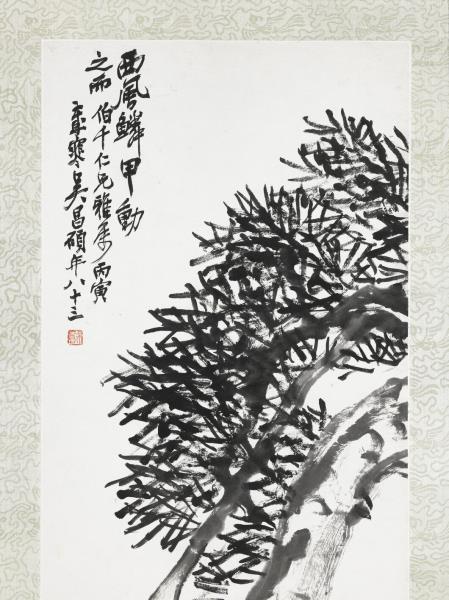 西風鱗甲動
之而 伯千仁兄雅屬 丙寅
春寒 吳昌碩年八十三